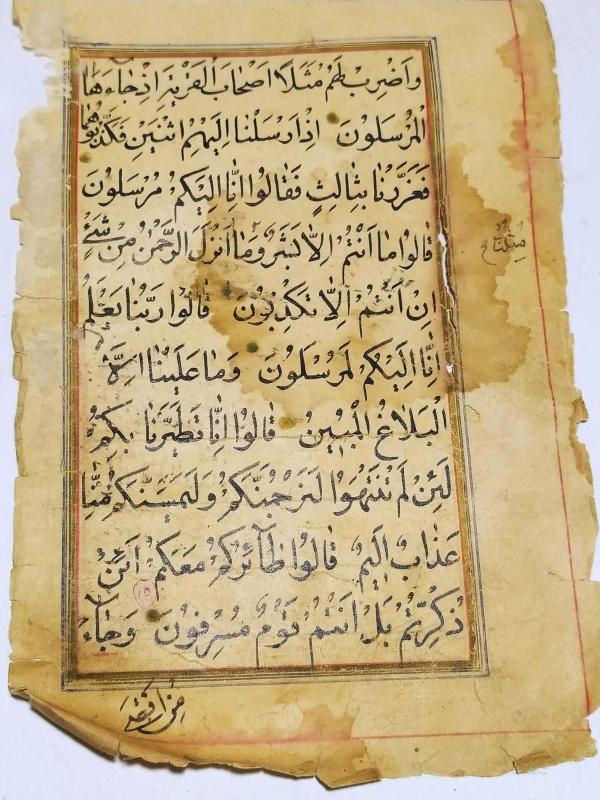 وَاضْرِبْ لَهُمْ مَثَلًا اَصْحَابَ الْقَرْيَةِ اِذْ جَاءَهَا
الْمُرْسَلُونَ اِذْ اَرْسَلْنَا اِلَيْهِمُ اثْنَيْنِ فَكَذَّبُوهُمَا
فَعَزَّزْنَا بِثَالِثٍ فَقَالُوا اِنَّا اِلَيْكُمْ مُرْسَلُونَ
قَالُوا مَا اَنْتُمْ اِلَّا بَشَرٌ وَمَا اَنْزَلَ الرَّحْمٰنُ مِنْ شَيْءٍ
اِنْ اَنْتُمْ اِلَّا تَكْذِبُونَ قَالُوا رَبُّنَا يَعْلَمُ
اِنَّا اِلَيْكُمْ لَمُرْسَلُونَ وَمَا عَلَيْنَا اِلَّا
الْبَلَاغُ الْمُبِينُ قَالُوا اِنَّا تَطَيَّرْنَا بِكُمْ
لَئِنْ لَمْ تَنْتَهُوا لَنَرْجُمَنَّكُمْ وَلَيَمَسَّنَّكُمْ مِنَّا
عَذَابٌ اَلِيمٌ قَالُوا طَآئِرُكُمْ مَعَكُمْ اَئِنْ
ذُكِّرْتُمْ بَلْ اَنْتُمْ قَوْمٌ مُسْرِفُونَ وَجَآءَ